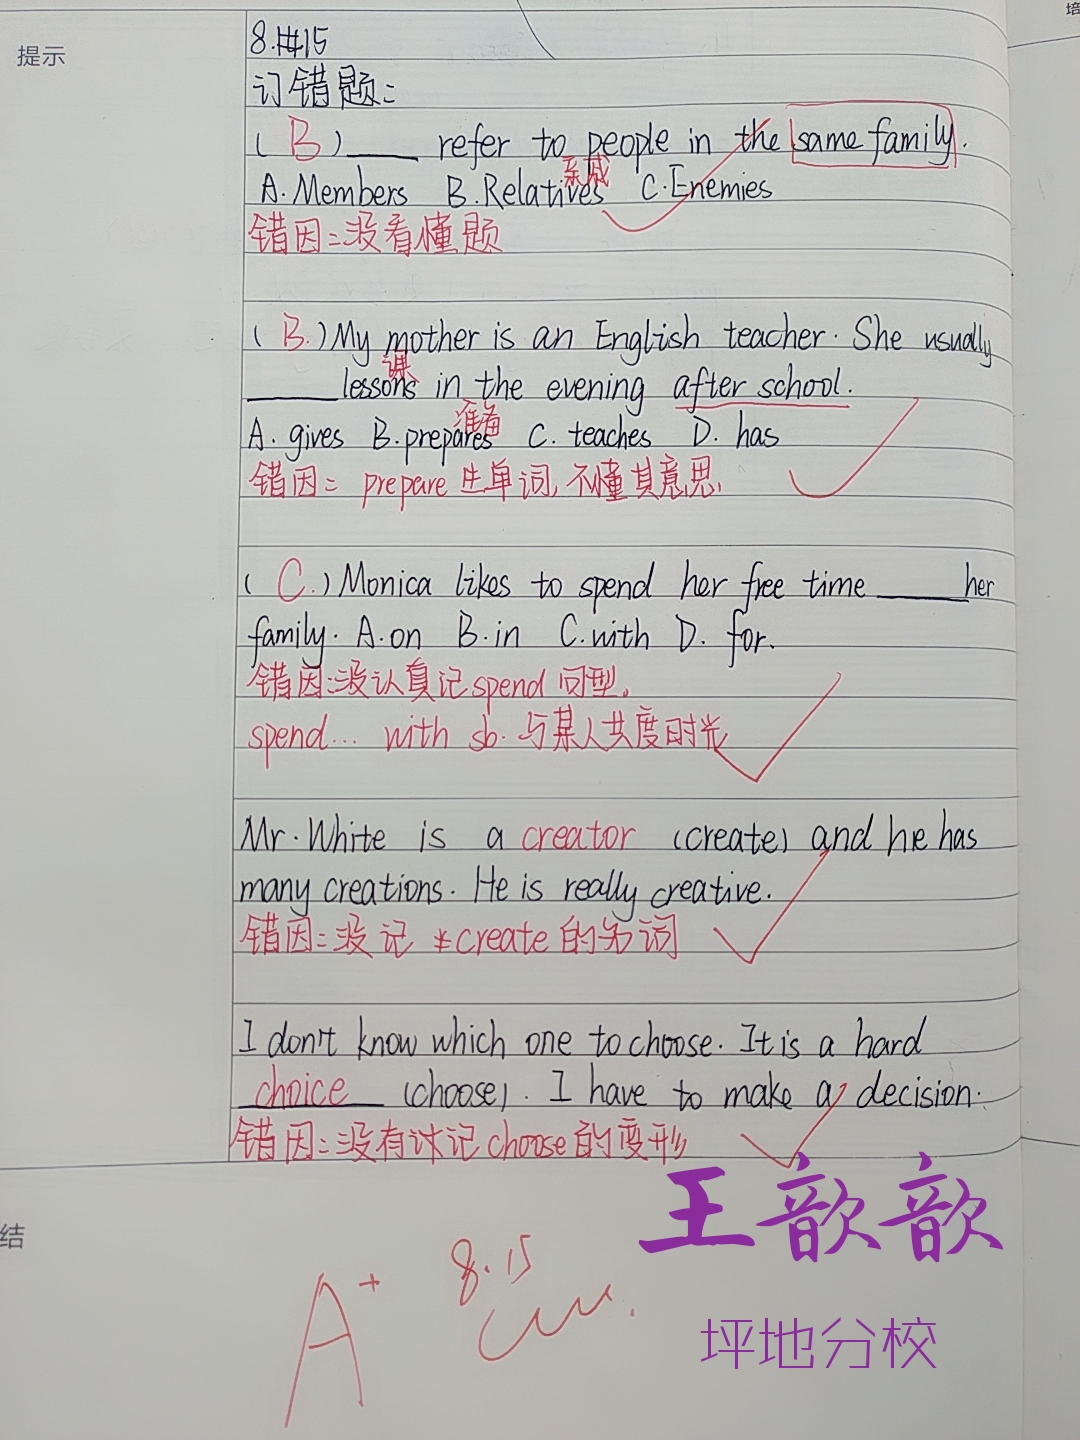 培
提示
8.15
订错题:
( B ) ____ refer to people in the same family.
亲戚
A. Members B. Relatives C. Enemies
错因:没看懂题
( B. ) My mother is an English teacher. She usually
课
____ lessons in the evening after school.
准备
A. gives B. prepares C. teaches D. has
错因: prepare 生单词,不懂其意思.
( C. ) Monica likes to spend her free time ____ her
family. A. on B. in C. with D. for.
错因:没认真记 spend 句型。
spend... with sb. 与某人共度时光
Mr. White is a creator (create) and he has
many creations. He is really creative.
错因:没记 create 的名词
I don't know which one to choose. It is a hard
choice (choose). I have to make a decision.
错因:没有记 choose 的变形
结
A+ 8.15
王歆歆
坪地分校